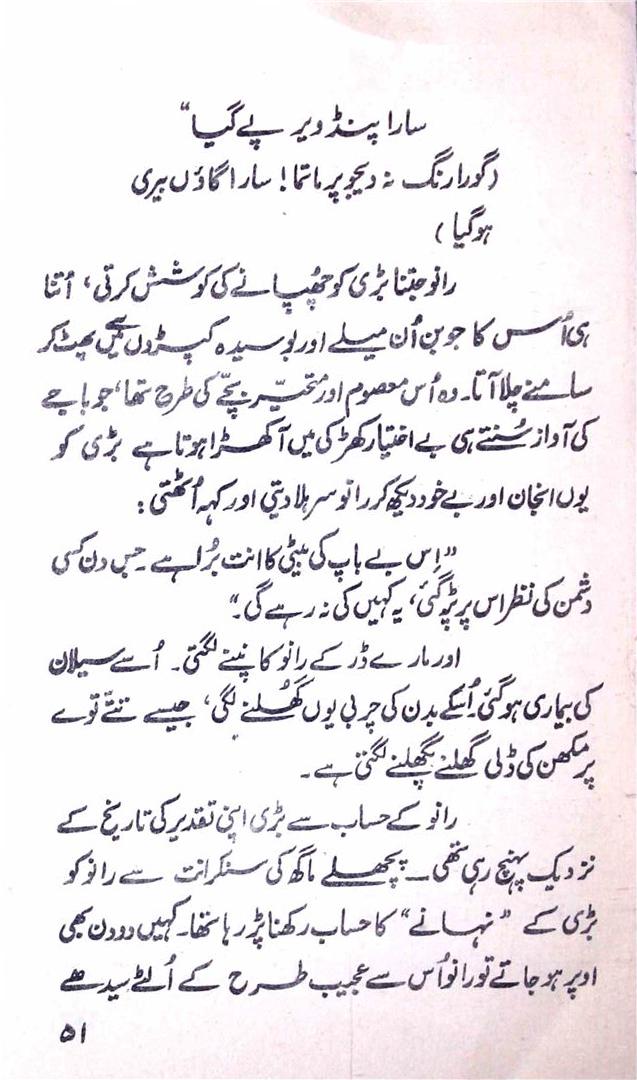 سارا پنڈ ویر پے گیا"
(گورا رنگ نہ دیجو پرماتما! سارا گاؤں بیری
ہوگیا)
رانو جتنا بڑی کو چھُپانے کی کوشش کرتی، اُتنا
ہی اُس کا جوبن اُن میلے اور بوسیدہ کپڑوں میں پھٹ کر
سامنے چلا آتا۔ وہ اُس معصوم اور متحیّر بچّے کی طرح تھا، جو باجے
کی آواز سُنتے ہی بے اختیار کھڑکی میں آکھڑا ہوتا ہے بڑی کو
یوں انجان اور بے خود دیکھ کر رانو سر ہلا دیتی اور کہہ اُٹھتی:
"اِس بے باپ کی بیٹی کا انت بُرا ہے ۔ جس دن کسی
دشمن کی نظر اس پر پڑ گئی، یہ کہیں کی نہ رہے گی۔"
اور مارے ڈر کے رانو کانپنے لگتی۔ اُسے سیلان
کی بیماری ہوگئی۔ اُسکے بدن کی چربی یوں گھُلنے لگی، جیسے تتّے توے
پر مکھن کی ڈلی گھلنے پگھلنے لگتی ہے۔
رانو کے حساب سے بڑی اپنی تقدیر کی تاریخ کے
نزدیک پہنچ رہی تھی۔ پچھلے ماگھ کی سنکرانت سے رانو کو
بڑی کے "نہانے" کا حساب رکھنا پڑ رہا تھا۔ کہیں دو دن بھی
اوپر ہو جاتے تو رانو اُس سے عجیب طرح کے اُلٹے سیدھے
۵۱